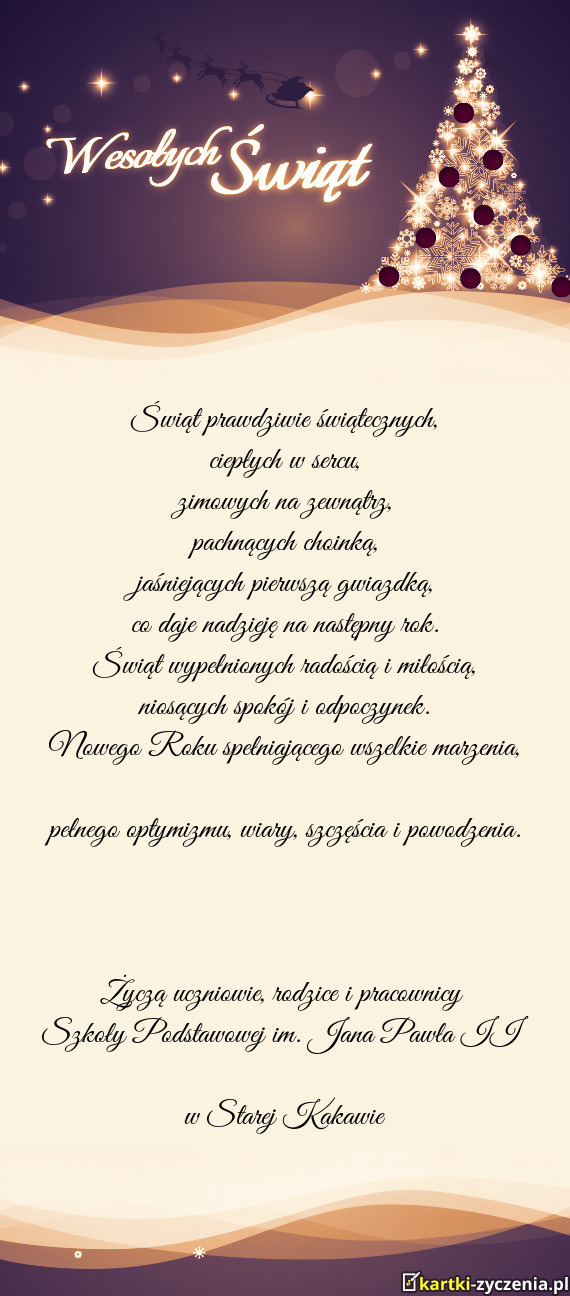 Wesołych Świąt
Świąt prawdziwie świątecznych,
ciepłych w sercu,
zimowych na zewnątrz,
pachnących choinką,
jaśniejących pierwszą gwiazdką,
co daje nadzieję na następny rok.
Świąt wypełnionych radością i miłością,
niosących spokój i odpoczynek.
Nowego Roku spełniającego wszelkie marzenia,
pełnego optymizmu, wiary, szczęścia i powodzenia.
Życzą uczniowie, rodzice i pracownicy
Szkoły Podstawowej im. Jana Pawła II
w Starej Kakawie
kartki-zyczenia.pl